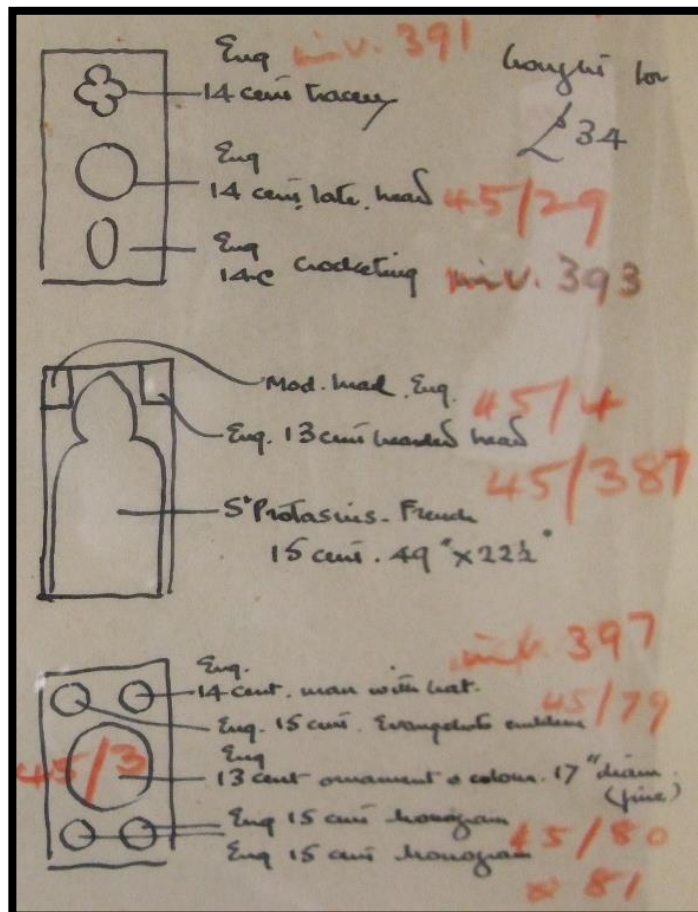 Eng inv. 391 bought for
14 cent tracery £34
Eng
14 cent. late. head 45/29
Eng
14-c crocketing inv. 393
Mod. head. Eng. 45/4
Eng. 13 cent bearded head
45/387
St Protasius - French
15 cent. 49" x 22½"
inv. 397
Eng.
14 cent. man with hat.
45/79
Eng. 15 cent. Evangelists emblem
45/3 Eng
13 cent ornament & colour. 17" diam.
(fine)
Eng 15 cent monogram
45/80
Eng 15 cent monogram
& 81